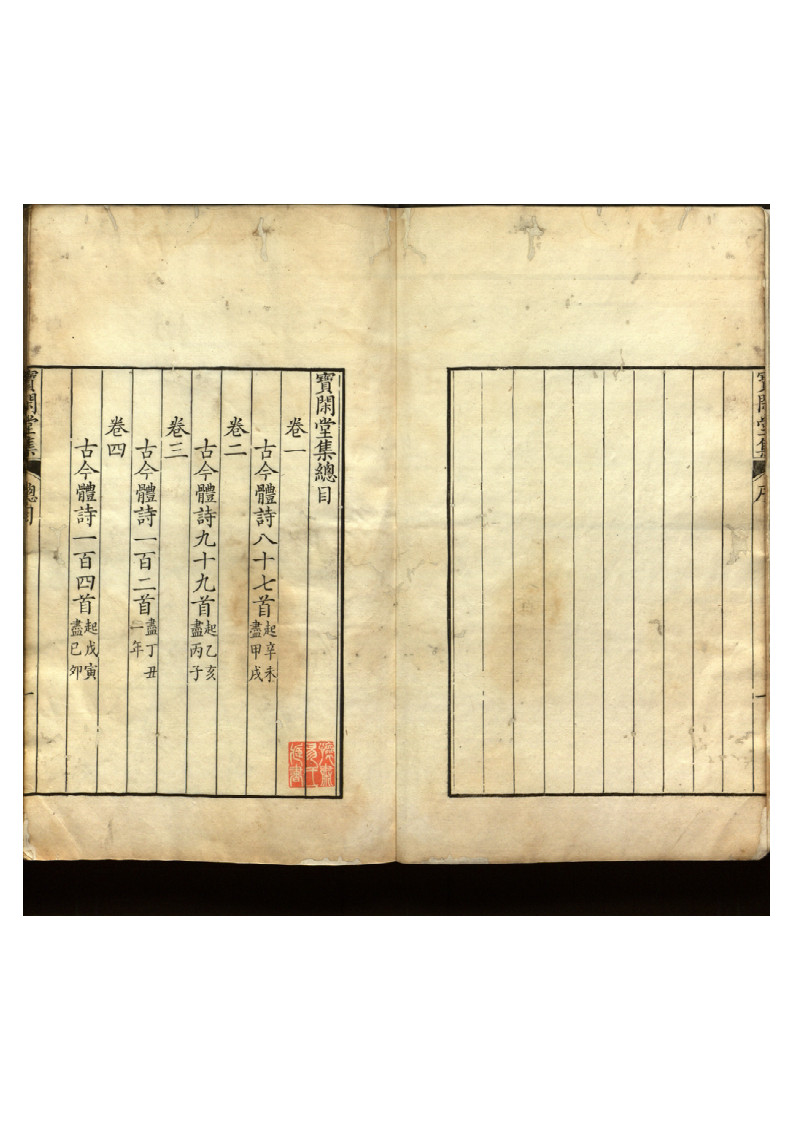 寶閑堂集
序
一
寶閑堂集總目
卷一
古今體詩八十七首起辛未盡甲戌
卷二
古今體詩九十九首起乙亥盡丙子
卷三
古今體詩一百二首盡丁丑一年
卷四
古今體詩一百四首起戊寅盡己卯
寶閑堂集
總目
一